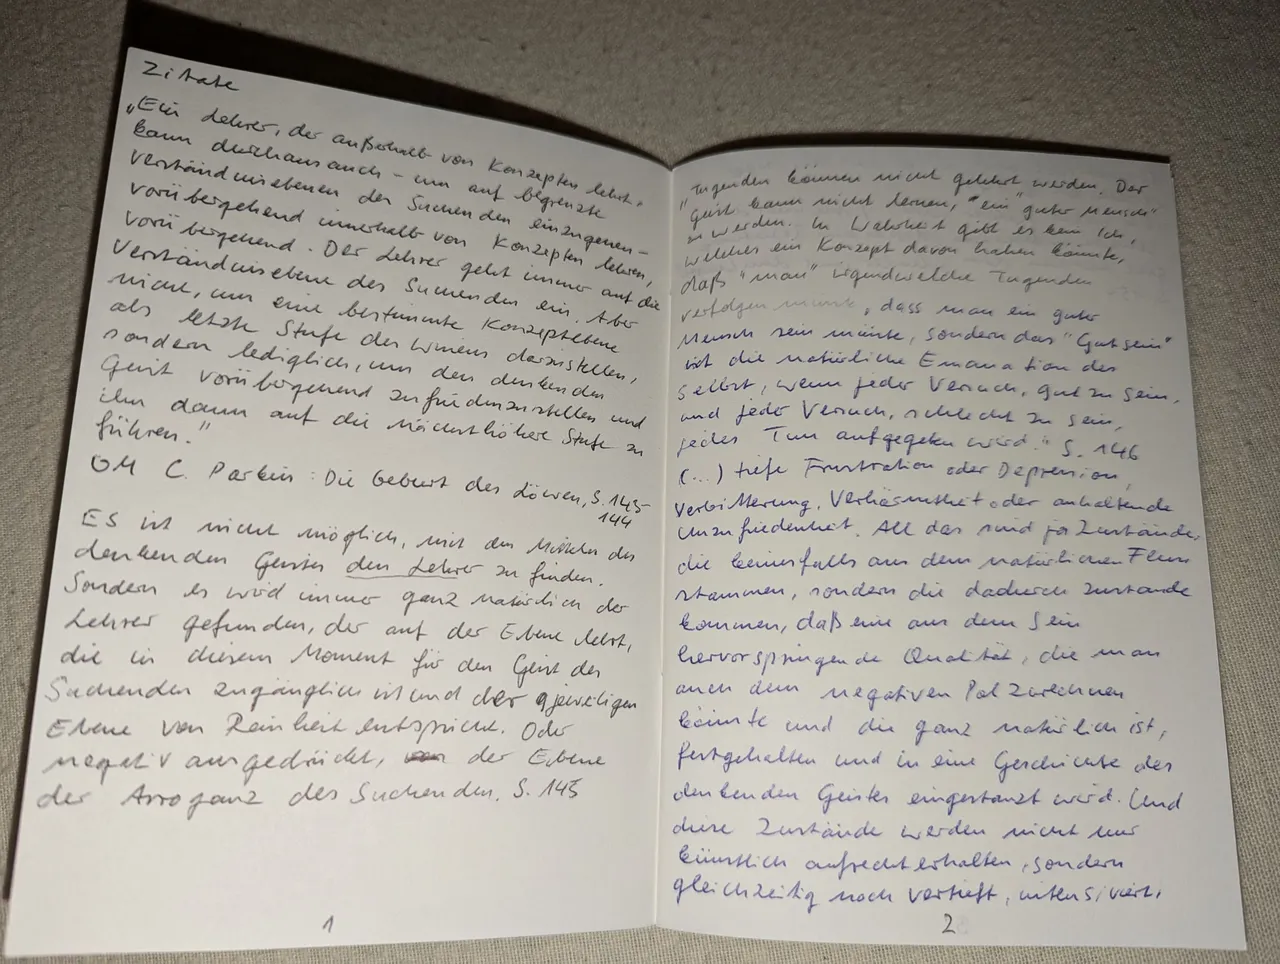 Zitate
„Ein Lehrer, der außerhalb von Konzepten lehrt,
kann durchaus auch – um auf begrenzte
Verständnisebenen des Suchenden einzugehen –
vorübergehend innerhalb von Konzepten lehren,
vorübergehend. Der Lehrer geht immer auf die
Verständnisebene des Suchenden ein. Aber
nicht, um eine bestimmte Konzeptebene
als letzte Stufe des Wissens darzustellen,
sondern lediglich, um den denkenden
Geist vorübergehend zufriedenzustellen und
ihn dann auf die nächsthöhere Stufe zu
führen."
OM C. Parkin: Die Geburt des Löwen, S. 143-
144
ES ist nicht möglich, mit den Mitteln des
denkenden Geistes den Lehrer zu finden.
Sondern es wird immer ganz natürlich der
Lehrer gefunden, der auf der Ebene lehrt,
die in diesem Moment für den Geist des
Suchenden zugänglich ist und der jeweiligen
Ebene von Reinheit entspricht. Oder
negativ ausgedrückt, der Ebene
der Arroganz des Suchenden. S. 145
1
"Tugenden können nicht gelehrt werden. Der
Geist kann nicht lernen, "ein" guter Mensch"
zu werden. In Wahrheit gibt es kein Ich,
welches ein Konzept davon haben könnte,
daß "man" irgendwelche Tugenden
verfolgen müsste, dass man ein guter
Mensch sein müsste, sondern das "Gutsein"
ist die natürliche Emanation des
Selbst, wenn jeder Versuch, gut zu sein,
und jeder Versuch, schlecht zu sein,
jedes Tun aufgegeben wird." S. 146
(...) tiefe Frustration oder Depression,
Verbitterung, Verhärmtheit oder anhaltende
Unzufriedenheit. All das sind ja Zustände,
die keinesfalls aus dem natürlichen Fluss
stammen, sondern die dadurch zustande
kommen, daß eine aus dem Sein
hervorspringende Qualität, die man
auch dem negativen Pol zurechnen
könnte und die ganz natürlich ist,
festgehalten und in eine Geschichte des
denkenden Geistes eingestanzt wird. Und
diese Zustände werden nicht nur
künstlich aufrecht erhalten, sondern
gleichzeitig noch vertieft, intensiviert,
2